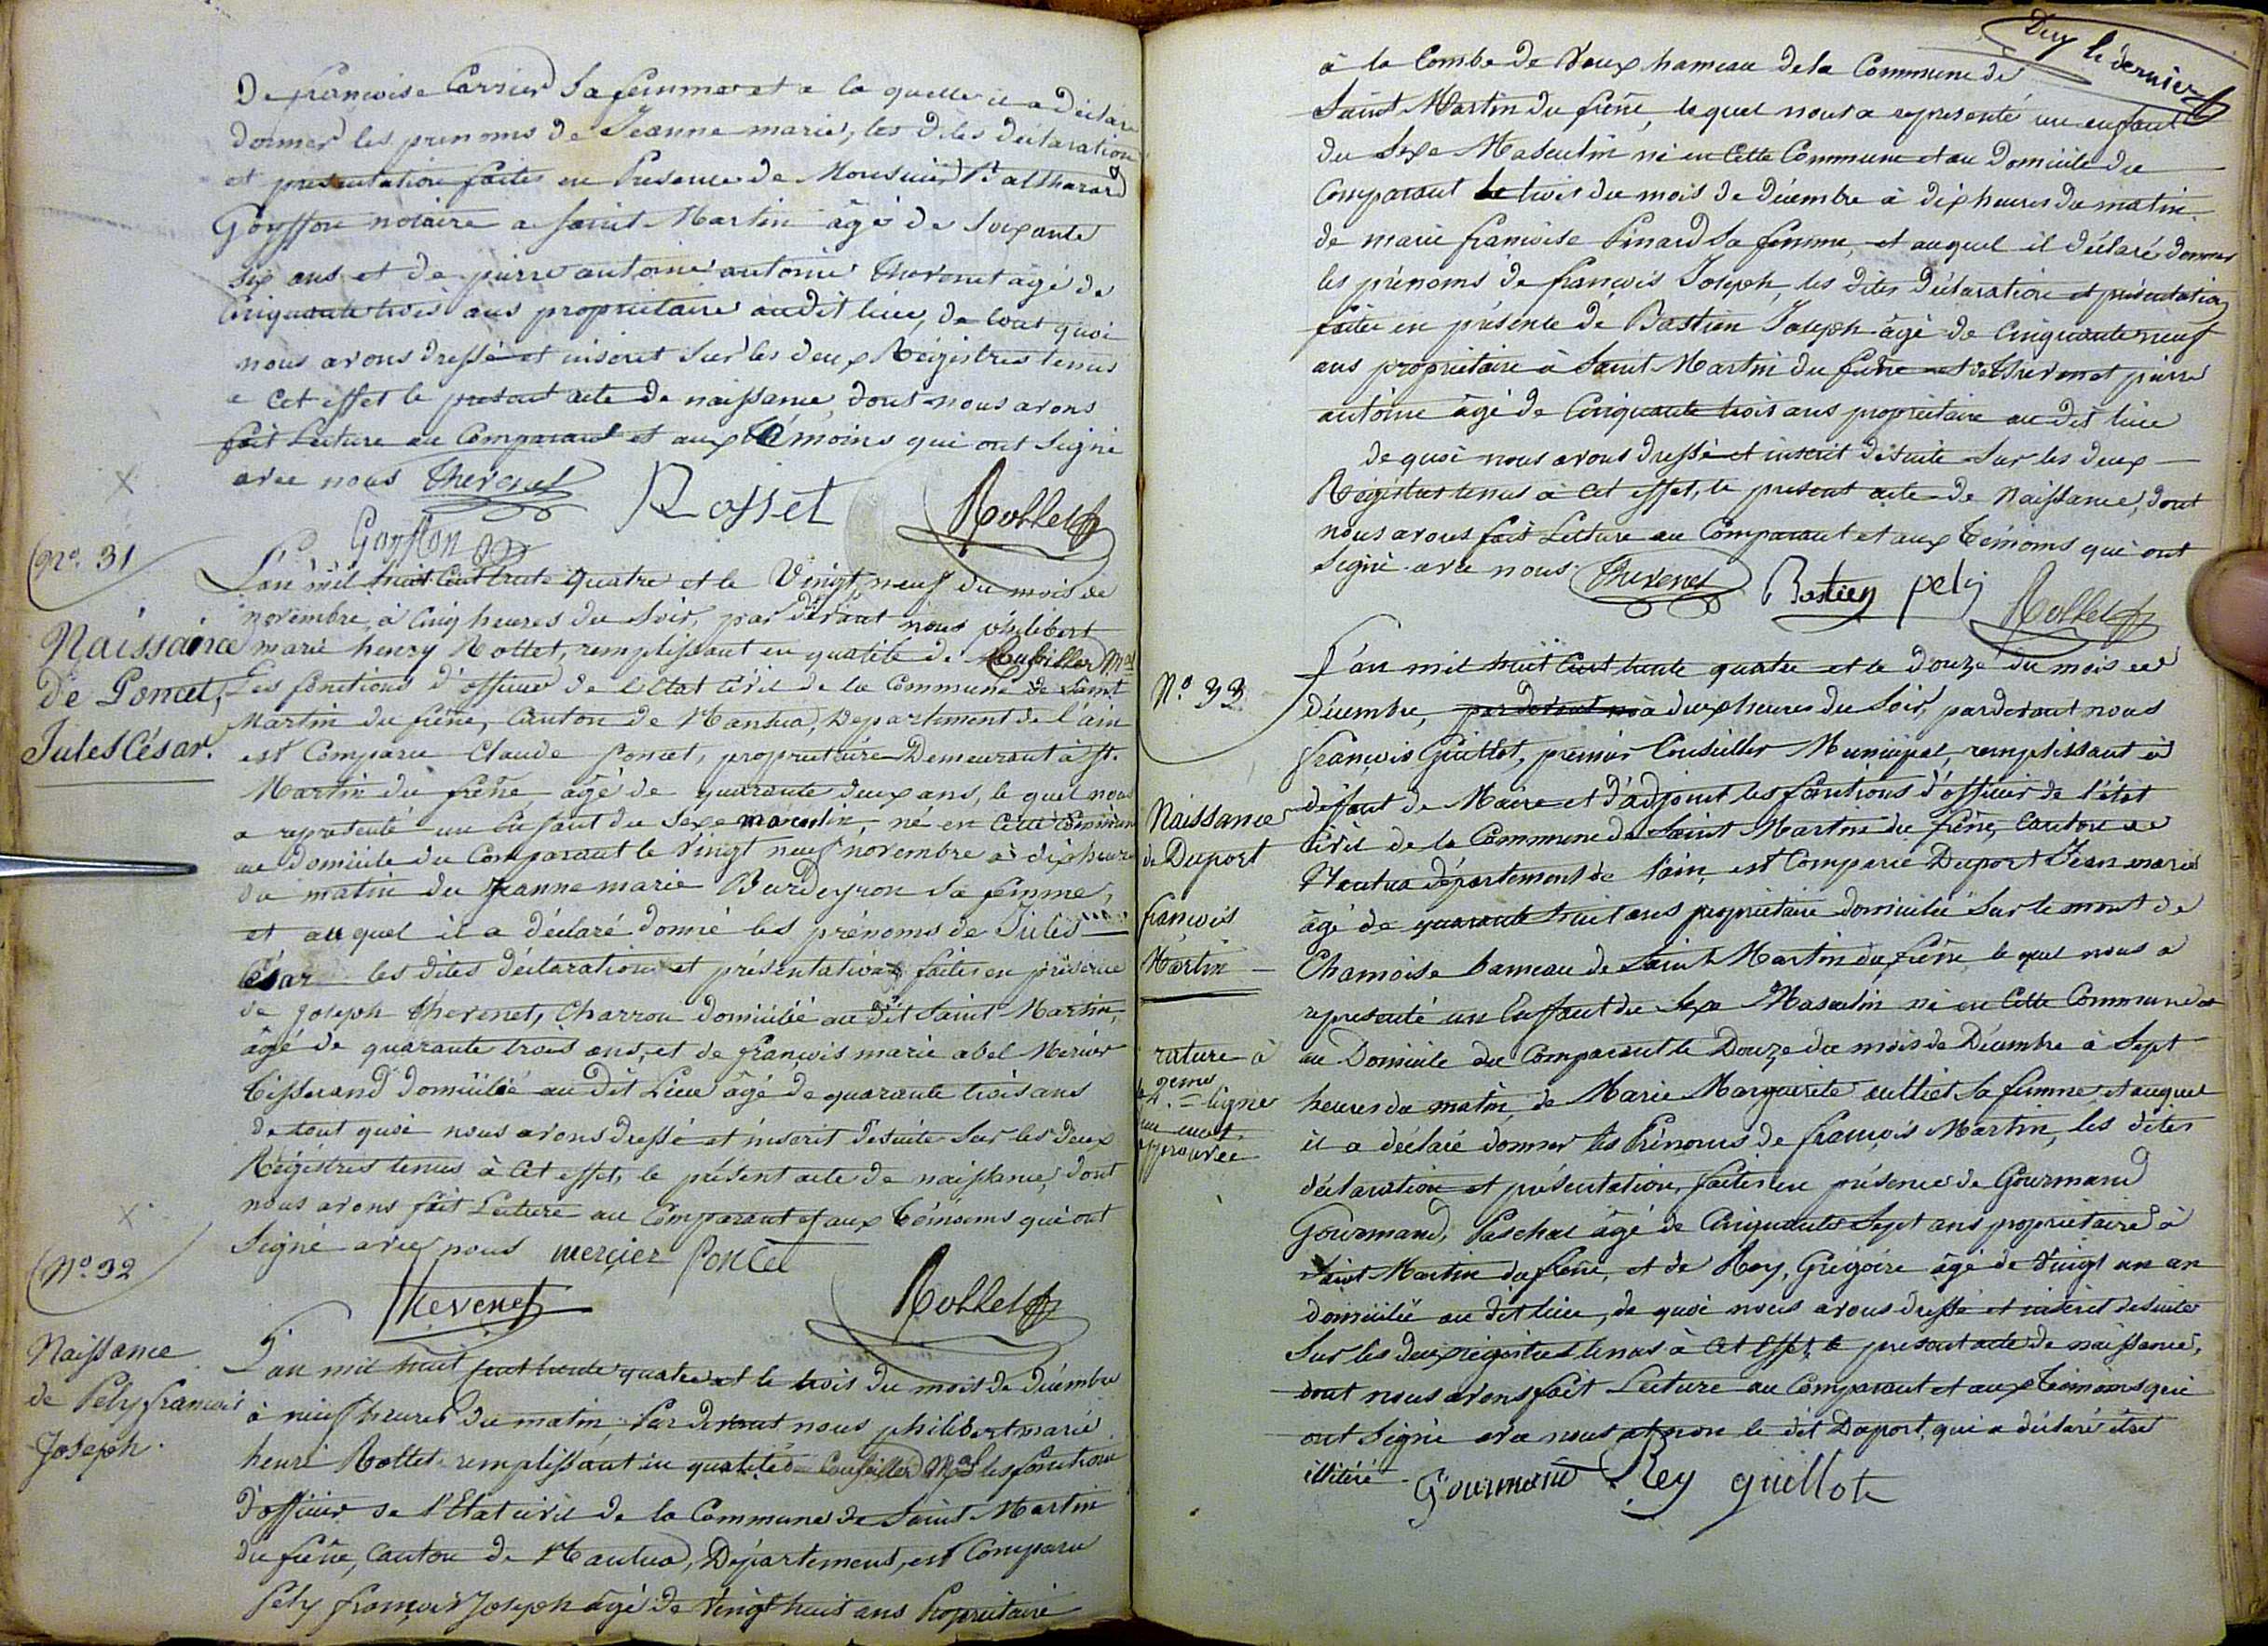 De françoise Carrier Sa femme et a la quelle il a déclaré
donner les prenoms de Jeanne marie, les dites déclaration
et presentation faites en Presence de Monsieur Balthazard
Goyffon notaire a saint Martin âgé de soixante
six ans et de pierre antoine antoine Thevenet âgé de
Cinquante trois ans proprietaire audit lieu, de tout quoi
nous avons dressé et inscrit sur les deux Régistres tenus
a cet effet le present acte de naissance, dont nous avons
fait Lecture au Comparant et aux témoins qui ont signé
avec nous Thevenet Rosset Rollet
Goyffon
No. 31
Naissance
de Poncet,
Jules César.
L'an mil huit cent trente quatre et le Vingt neuf du mois de
novembre, à Cinq heures du Soir, par devant nous philibert
marie henry Rollet, remplissant en qualité de Conseiller Mal
Les fonctions d'officier de l'Etat Civil de la Commune de Saint
Martin du frêne, Canton de Nantua, Departement de l'ain
est Comparu Claude Poncet, propriétaire Demeurant à St.
Martin du frêne âgé de quarante deux ans, le quel nous
a représenté un Enfant du Sexe masculin, né en Cette Commune
au domicile du Comparant le Vingt neuf novembre à dix heures
du matin de Jeanne marie Burdeyron sa femme,
et au quel il a déclaré donné les prénoms de Jules
César les dites déclaration et présentation faites en présence
de Joseph thevenet, Charron domicilié au dit Saint Martin,
âgé de quarante trois ans, et de françois marie abel Mercier
tisserand domicilié au dit Lieu âgé de quarante trois ans
de tout quoi nous avons dressé et inscrit desuite Sur les deux
Régistres tenus à Cet effet, le présent acte de naissance, dont
nous avons fait Lecture au Comparant et aux témoins qui ont
Signé avec nous mercier Poncet
Thevenet Rollet
No. 32
Naissance
de Pely françois
Joseph.
L'an mil huit cent trente quatre et le trois du mois de décembre
à neuf heures du matin, Par devant nous philibert marie
henri Rollet remplissant en qualité de Conseiller Mal les fonctions
d'officier de l'Etat civil de la Commune de Saint Martin
du frêne, Canton de Nantua, Département, est Comparu
Pely françois Joseph âgé de Vingt huit ans Propriétaire
Duy le dernier
à la Combe de Vaux hameau de la Commune de
Saint Martin du frêne, le quel nous a representé un enfant
du Sexe Masculin né en Cette Commune et au domicile du
Comparant le trois du mois de décembre à dix heures du matin
de marie françoise Pinard Sa femme, et auquel il déclaré donner
les prénoms de françois Joseph, les dites déclaration et présentation
faites en présence de Bastien Joseph âgé de Cinquante neuf
ans propriétaire à Saint Martin du frêne et de thevenet pierre
antoine âgé de Cinquante trois ans propriétaire au dit lieu
de quoi nous avons dressé et inscrit desuite Sur les deux
Régistres tenus à Cet effet, le present acte de Naissance, dont
nous avons fait Lecture au Comparant et aux témoins qui ont
Signé avec nous. Thevenet Bastien pely Rollet
No. 33
Naissance
de Duport
françois
Martin
rature à
la 2eme
ligne
un mot
approuvée
L'an mil huit Cent trente quatre et le douze du mois de
décembre, par devant no à deux heures du Soir, pardevant nous
François Guillot, premier Conseiller Municipal, remplissant à
défaut de Maire et d'adjoint les fonctions d'officier de l'état
Civil de la Commune de Saint Martin du frêne, Canton de
Nantua département de l'ain, est Comparu Duport Jean marie
âgé de quarante huit ans propriétaire domicilié Sur le mont de
Chamoise hameau de Saint Martin du frêne le quel nous a
representé un Enfant du Sexe Masculin né en Cette Commune et
au Domicile du Comparant le Douze du mois de Décembre à Sept
heures du matin, de Marie Marguerite Sa femme et auquel
il a déclaré donner les Prénoms de françois Martin, les dites
déclaration et présentation, faites en présence de Gourmand
Gourmand, Paschal âgé de Cinquante Sept ans propriétaire à
Saint Martin du frêne, et de Rey, Grégoire âgé de Vingt un an
domicilié au dit lieu, de quoi nous avons dressé et inscrit desuite
Sur les deux régistres tenus à Cet Effet, le present acte de naissance,
dont nous avons fait Lecture au Comparant et aux Témoins qui
ont Signé avec nous et non le dit Duport, qui a déclaré être
illitéré. Gourmand Rey guillot